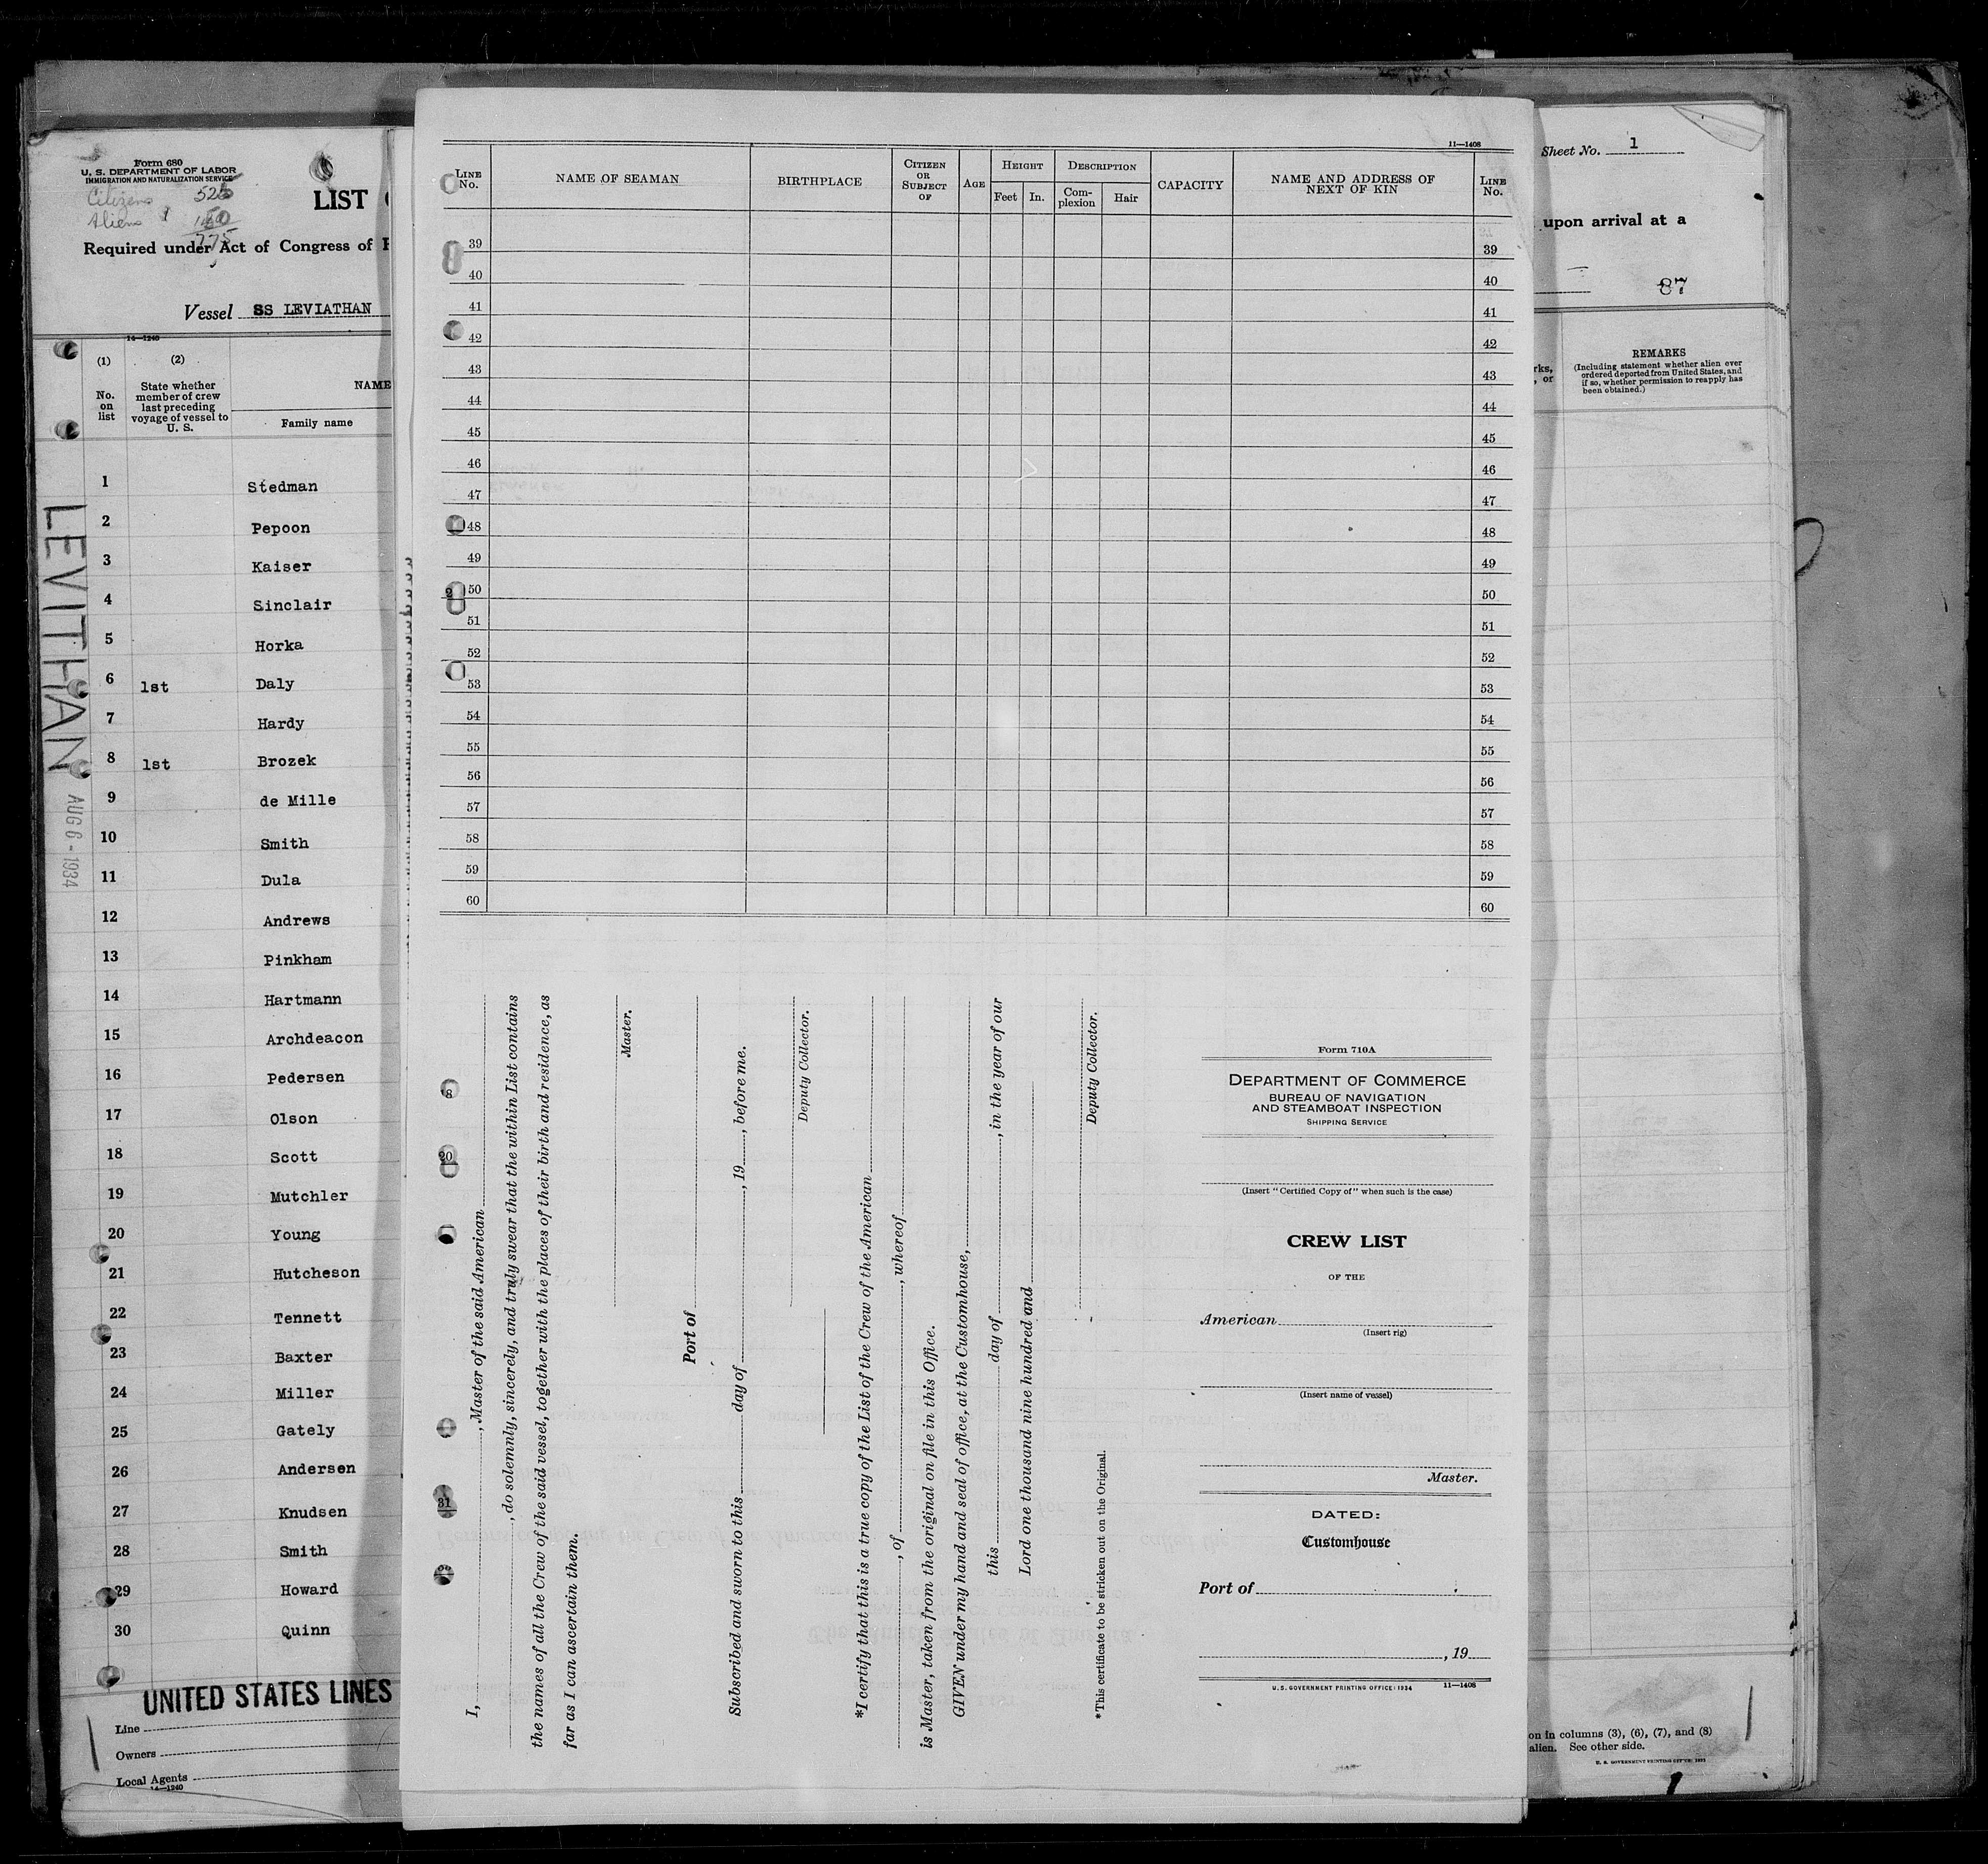 Form 680
U. S. DEPARTMENT OF LABOR
IMMIGRATION AND NATURALIZATION SERVICE
Citizens 525
Aliens
775
LIST
Required under Act of Congress of
Vessel SS LEVIATHAN
14—1240
(1)
No. on list
(2)
State whether member of crew last preceding voyage of vessel to U. S.
NAME
Family name
1 Stedman
2 Pepoon
3 Kaiser
4 Sinclair
5 Horka
6 1st Daly
7 Hardy
8 1st Brozek
9 de Mille
10 Smith
11 Dula
12 Andrews
13 Pinkham
14 Hartmann
15 Archdeacon
16 Pedersen
17 Olson
18 Scott
19 Mutchler
20 Young
21 Hutcheson
22 Tennett
23 Baxter
24 Miller
25 Gately
26 Andersen
27 Knudsen
28 Smith
29 Howard
30 Quinn
LEVITHAN
AUG 6 - 1934
UNITED STATES LINES
Line
Owners
Local Agents
14—1240
11—1408
LINE No.
NAME OF SEAMAN
BIRTHPLACE
CITIZEN OR SUBJECT OF
AGE
HEIGHT
Feet In.
DESCRIPTION
Complexion Hair
CAPACITY
NAME AND ADDRESS OF NEXT OF KIN
LINE No.
39 39
40 40
41 41
42 42
43 43
44 44
45 45
46 46
47 47
48 48
49 49
50 50
51 51
52 52
53 53
54 54
55 55
56 56
57 57
58 58
59 59
60 60
I, , Master of the said American
, do solemnly, sincerely, and truly swear that the within List contains
the names of all the Crew of the said vessel, together with the places of their birth and residence, as
far as I can ascertain them.
Master.
Port of
Subscribed and sworn to this day of , 19 , before me.
Deputy Collector.
*I certify that this is a true copy of the List of the Crew of the American
, of , whereof
is Master, taken from the original on file in this Office.
GIVEN under my hand and seal of office, at the Customhouse,
this day of , in the year of our
Lord one thousand nine hundred and
Deputy Collector.
*This certificate to be stricken out on the Original.
Form 710A
DEPARTMENT OF COMMERCE
BUREAU OF NAVIGATION
AND STEAMBOAT INSPECTION
SHIPPING SERVICE
(Insert "Certified Copy of" when such is the case)
CREW LIST
OF THE
American
(Insert rig)
(Insert name of vessel)
Master.
DATED:
Customhouse
Port of
, 19
U.S. GOVERNMENT PRINTING OFFICE: 1934 11—1408
Sheet No. 1
upon arrival at a
87
rks,
, or
REMARKS
(Including statement whether alien ever
ordered deported from United States, and
if so, whether permission to reapply has
been obtained.)
on in columns (3), (6), (7), and (8)
alien. See other side.